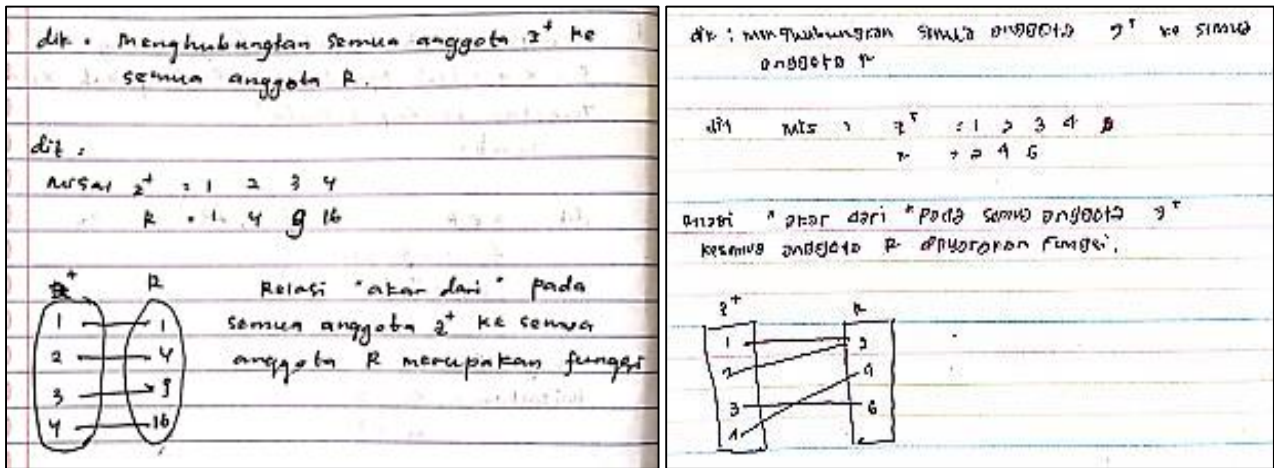 dik : Menghubungkan semua anggota z⁺ ke
semua anggota R.
dit :
Misal z⁺ : 1 2 3 4
R : 1 4 9 16
z⁺ R
1 1
2 4
3 9
4 16
Relasi "akar dari" pada
semua anggota z⁺ ke semua
anggota R merupakan fungsi
dik : menghubungkan semua anggota z⁺ ke semua
anggota R
dit mis : z⁺ : 1 2 3 4
R : 2 4 6
Relasi "akar dari" pada semua anggota z⁺
kesemua anggota R fungsi.
z⁺ R
1 2
2 4
3 6
4